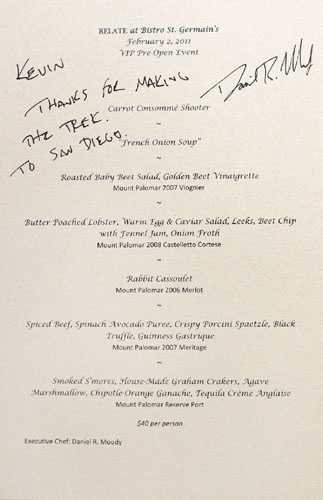 RELATE at Bistro St. Germain's
February 2, 2011
VIP Pre Open Event
KEVIN
THANKS FOR MAKING
THE TREK.
TO SAN DIEGO.
Carrot Consommé Shooter
~
"French Onion Soup"
~
Roasted Baby Beet Salad, Golden Beet Vinaigrette
Mount Palomar 2007 Viognier
~
Butter Poached Lobster, Warm Egg & Caviar Salad, Leeks, Beet Chip
with Fennel Jam, Onion Froth
Mount Palomar 2008 Castelletto Cortese
~
Rabbit Cassoulet
Mount Palomar 2006 Merlot
~
Spiced Beef, Spinach Avocado Puree, Crispy Porcini Spaetzle, Black
Truffle, Guinness Gastrique
Mount Palomar 2007 Meritage
~
Smoked S'mores, House-Made Graham Crakers, Agave
Marshmallow, Chipotle-Orange Ganache, Tequila Crème Anglaise
Mount Palomar Reserve Port
$40 per person
Executive Chef: Daniel R. Moody